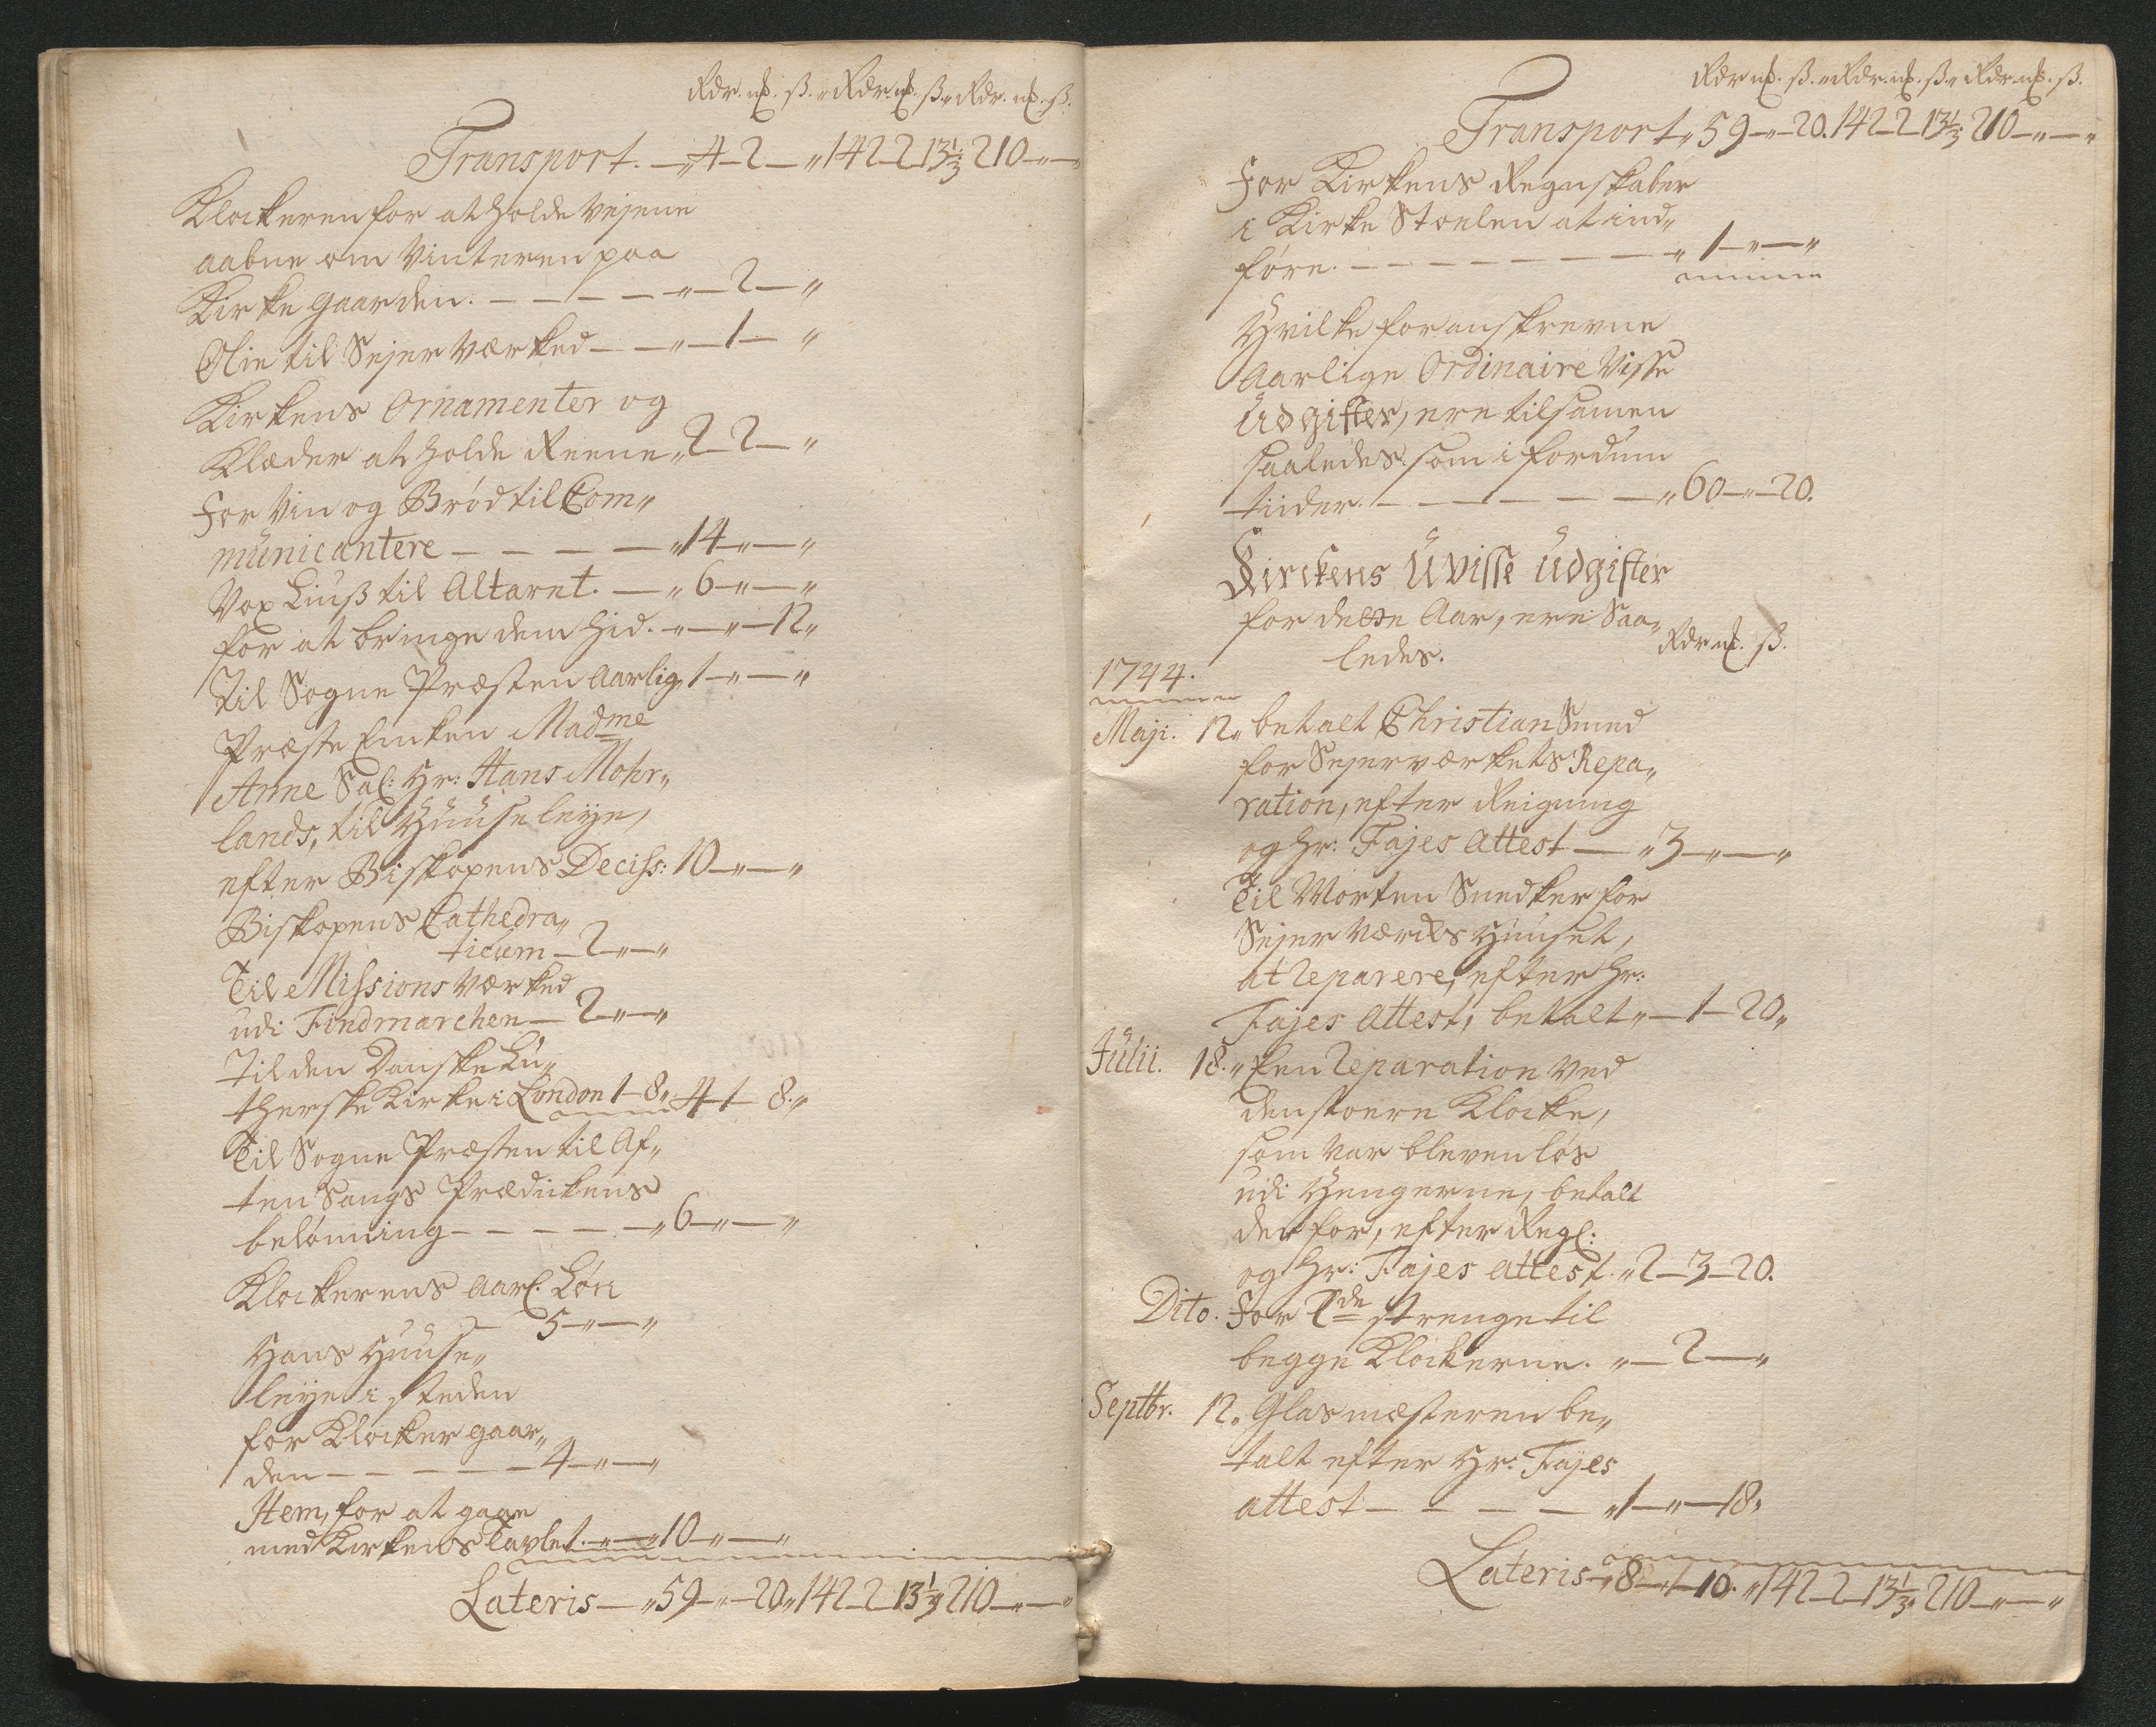 Rdr. mk. ß. Rdr. mk. ß. Rdr. mk. ß.
Transport. — " 4 — 2 — " 142 — 2 — 13 1/3 210 — " — "
Klockeren for at holde Vejene
aabne om Vinteren paa
Kirke gaarden. — — — — " — 2 — "
Olie til Sejer Værked — — " — 1 — "
Kirkens Ornamenter og
Klæder at holde Reene " 2 — 2 — "
For Vin og Brød til Com"
municantere — — — — " 14 — " — "
Vox Liuß til Altaret. — " 6 — " — "
for at bringe dem hid. " — " — 12 "
Til Sogne Præsten Aarlig " 1 — " — "
Præste Encken Madme
Anne Sal: Hr: Hans Mohr"
lands, til Huuse leye,
efter Biskopens Deciss: 10 — " — "
Biskopens Cathedra"
ticum — 2 — " — "
Til Missions Værked
udi Findmarchen — 2 — " — "
Til den Danske Lu"
therske Kirke i London 1 — 8 " 4 — 1 — 8 . "
Til Sogne Præsten til Af"
ten Sangs Prædickens
belønning — — — — — " 6 — " — "
Klockerens Aarl. Løn
— 5 — " — "
Hans Huuse"
leye i steden
for Klocker gaar"
den — — — — — 4 — " — "
Item, for at gaae
med Kirkens Tavlet. " — " 10 — " — "
Lateris — " 59 — " — 20 " 142 — 2 — 13 1/3 " 210 — " — "
Rdr mk. ß. Rdr. mk. ß. Rdr. mk. ß.
Transport " 59 — " — 20. 142 — 2 — 13 1/3 210 — " — "
For Kirkens Regnskaber
i Kirke Stoelen at ind"
føre. — — — — — — — " 1 — " — "
Hvilke foranskrevne
Aarlige Ordinaire Visse
Udgifter, ere tilsamen
saaledes som i fordum
tiider. — — — — — — " 60 — " — 20.
Kirckens Uvisse Udgifter
for dette Aar, ere Saa"
ledes. Rdr mk. ß.
1744.
Maji. 12 " betalt Christian Smed
for Sejerværkets Repa"
ration, efter Reigning
og Hr: Fajes Attest — " 3 — " — "
Til Morten Snedker for
Sejer Værcks Huuset,
at reparere, efter Hr:
Fajes Attest, betalt " — 1 — 20 "
Julii. 18. " Een reparation ved
den stoere Klocke,
som var bleven løs
udi Hengerne, betalt
derfor, efter Regl:
og Hr: Fajes attest. " 2 — 3 — 20.
Dito. For 2de strenge til
begge Klockerne. " — 2 — "
Septbr. 12. Glasmæsteren be"
talt efter Hr: Fajes
attest — — — — " 1 — " — 18 "
Lateris — " 8 — 1 — 10. " 142 — 2 — 13 1/3 " 210 — " — "